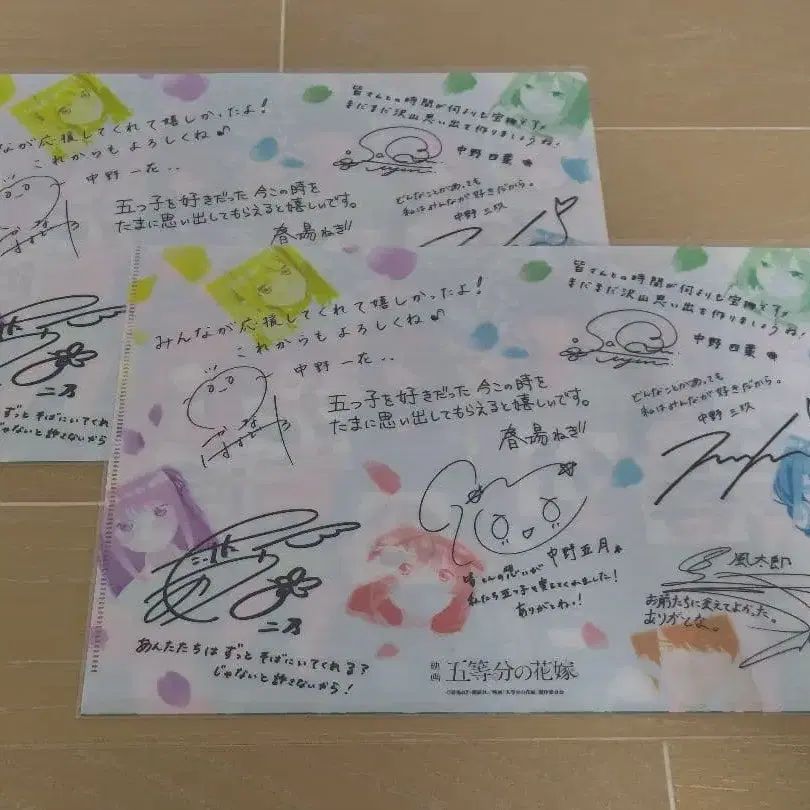 んなが応援してくれて嬉しかったよ!
これからもよろしくね♪
中野 一花..
皆さんとの時間が何よりも宝物です!
まだまだ沢山思い出を作りましょうね!
中野四葉
五つ子を好きだった 今この時を
たまに思い出してもらえると嬉しいです。
春場ねぎ
どんなことがあっても
私はみんなが好きだから。
中野 三玖
二乃
ずっと そばにいてくれ
じゃないと許さないから
みんなが応援してくれて嬉しかったよ!
これからもよろしくね♪
中野 一花..
皆さんとの時間が何よりも宝物です!
まだまだ沢山思い出を作りましょうね!
中野四葉
五つ子を好きだった 今この時を
たまに思い出してもらえると嬉しいです。
春場ねぎ
どんなことがあっても
私はみんなが好きだから。
中野 三玖
中野五月
皆さんの思いが
私たち五つ子を変えてくれました!
ありがとね!
二乃
あんたたちは ずっと そばにいてくれる?
じゃないと許さないから!
風太郎
お前たちに変えてよかった。
ありがとな。
映画 五等分の花嫁